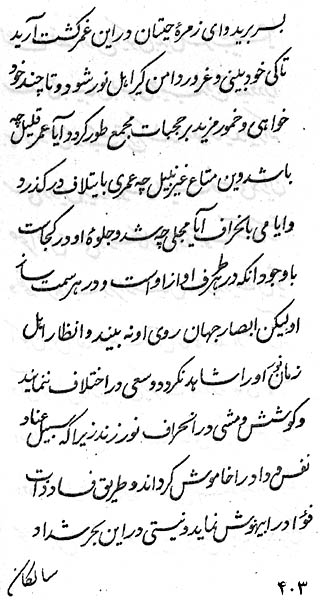 بسر برید و ای زمرهٔ حیتان در این غمر گشت آرید
تا کی خودبینی و غرور دامن گیر اهل نور شود و تا چند خود
خواهی و خمور مزید بر حجبات مجمع طور گردد آیا عمر قلیل چه
باشد وین متاع غیر نبیل چه عمری با یتلاف در گذرد
و ایامی با نحراف آیا مجلی چه شد و جلوهٔ او در کجا است
با وجود آنکه در هر طرف آواز او است و در هر سمت ساز
او لیکن ابصار جهان روی او نه بیند و انظار اهل
زمان نور او را مشاهد نکرد و سعی در اختلاف نمایند
و کوشش و مشی در انحراف نور زند زیرا که سبیل عناد
نفس و داد را خاموش گرداند و طریق فساد ذات
فؤاد را بیهوش نماید و نیستی در این بحر شداد
سالکان
۴۰۳